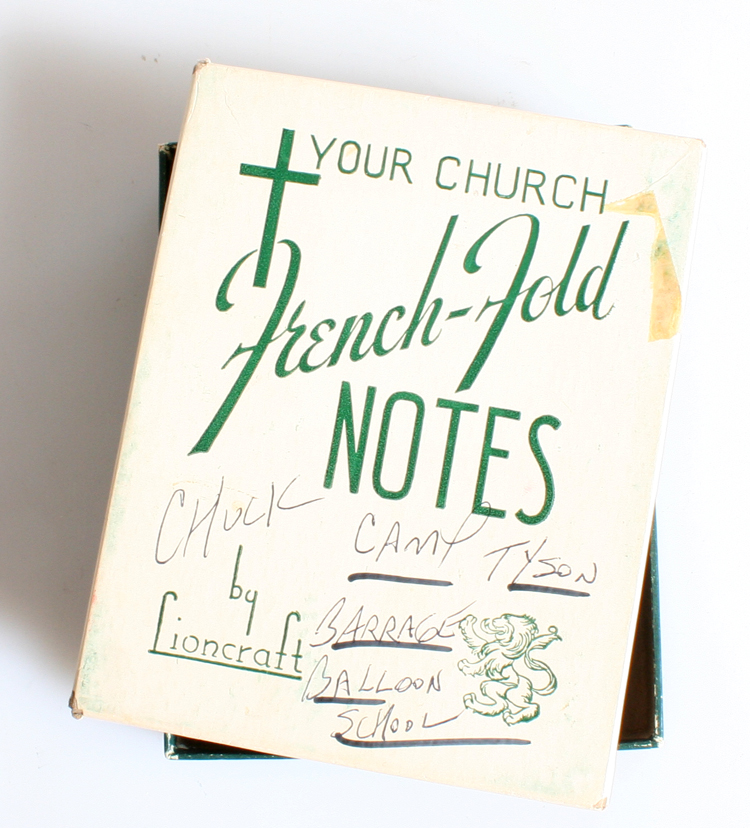 YOUR CHURCH
French-Fold
NOTES
CHUCK
CAMP TYSON
by
Lioncraft
BARRAGE
BALLOON
SCHOOL